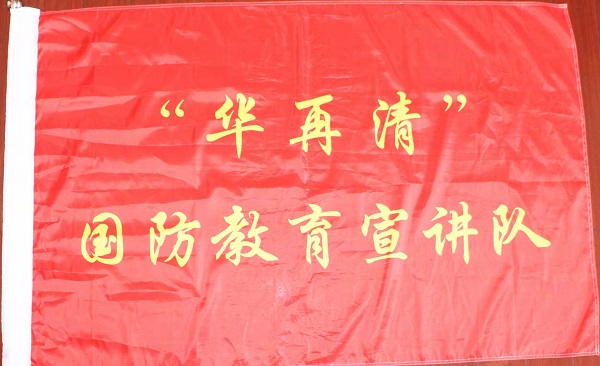 “华再清”
国防教育宣讲队